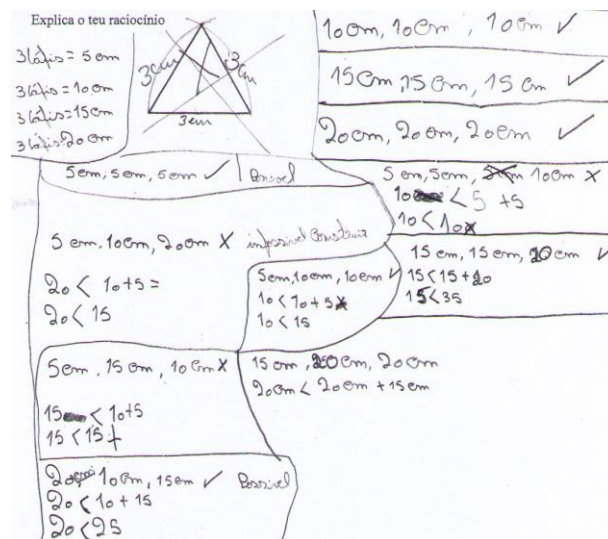 Explica o teu raciocínio
3 lápis = 5 cm
3 lápis = 10 cm
3 lápis = 15 cm
3 lápis = 20 cm
3cm
3cm
3cm
10 cm, 10 cm, 10 cm ✓
15 cm, 15 cm, 15 cm ✓
20 cm, 20 cm, 20 cm ✓
5 cm, 5 cm, 5 cm ✓ Possivel
5 cm, 5 cm, 10 cm X
10 < 5 + 5
10 < 10 x
5 cm, 10 cm, 20 cm X impossivel Construir
20 < 10+5 =
20 < 15
5 cm, 10 cm, 10 cm ✓
10 < 10 + 5
10 < 15
15 cm, 15 cm, 20 cm ✓
15 < 15 + 20
15 < 35
5 cm, 15 cm, 10 cm X
15 < 10+5
15 < 15
15 cm, 20 cm, 20 cm
20 cm < 20 cm + 15 cm
20, 10 cm, 15 cm ✓ Possivel
20 < 10 + 15
20 < 25